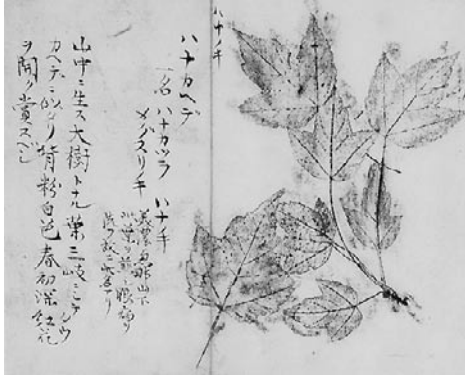 ハナノキ
ハナカヘデ
一名 ハナカツラ ハナノキ
メグスリノキ
山中ニ生ス大樹トナル葉三岐ニ
カヘデニ似タリ背粉白色春初深紅花
ヲ開ク賞スベシ